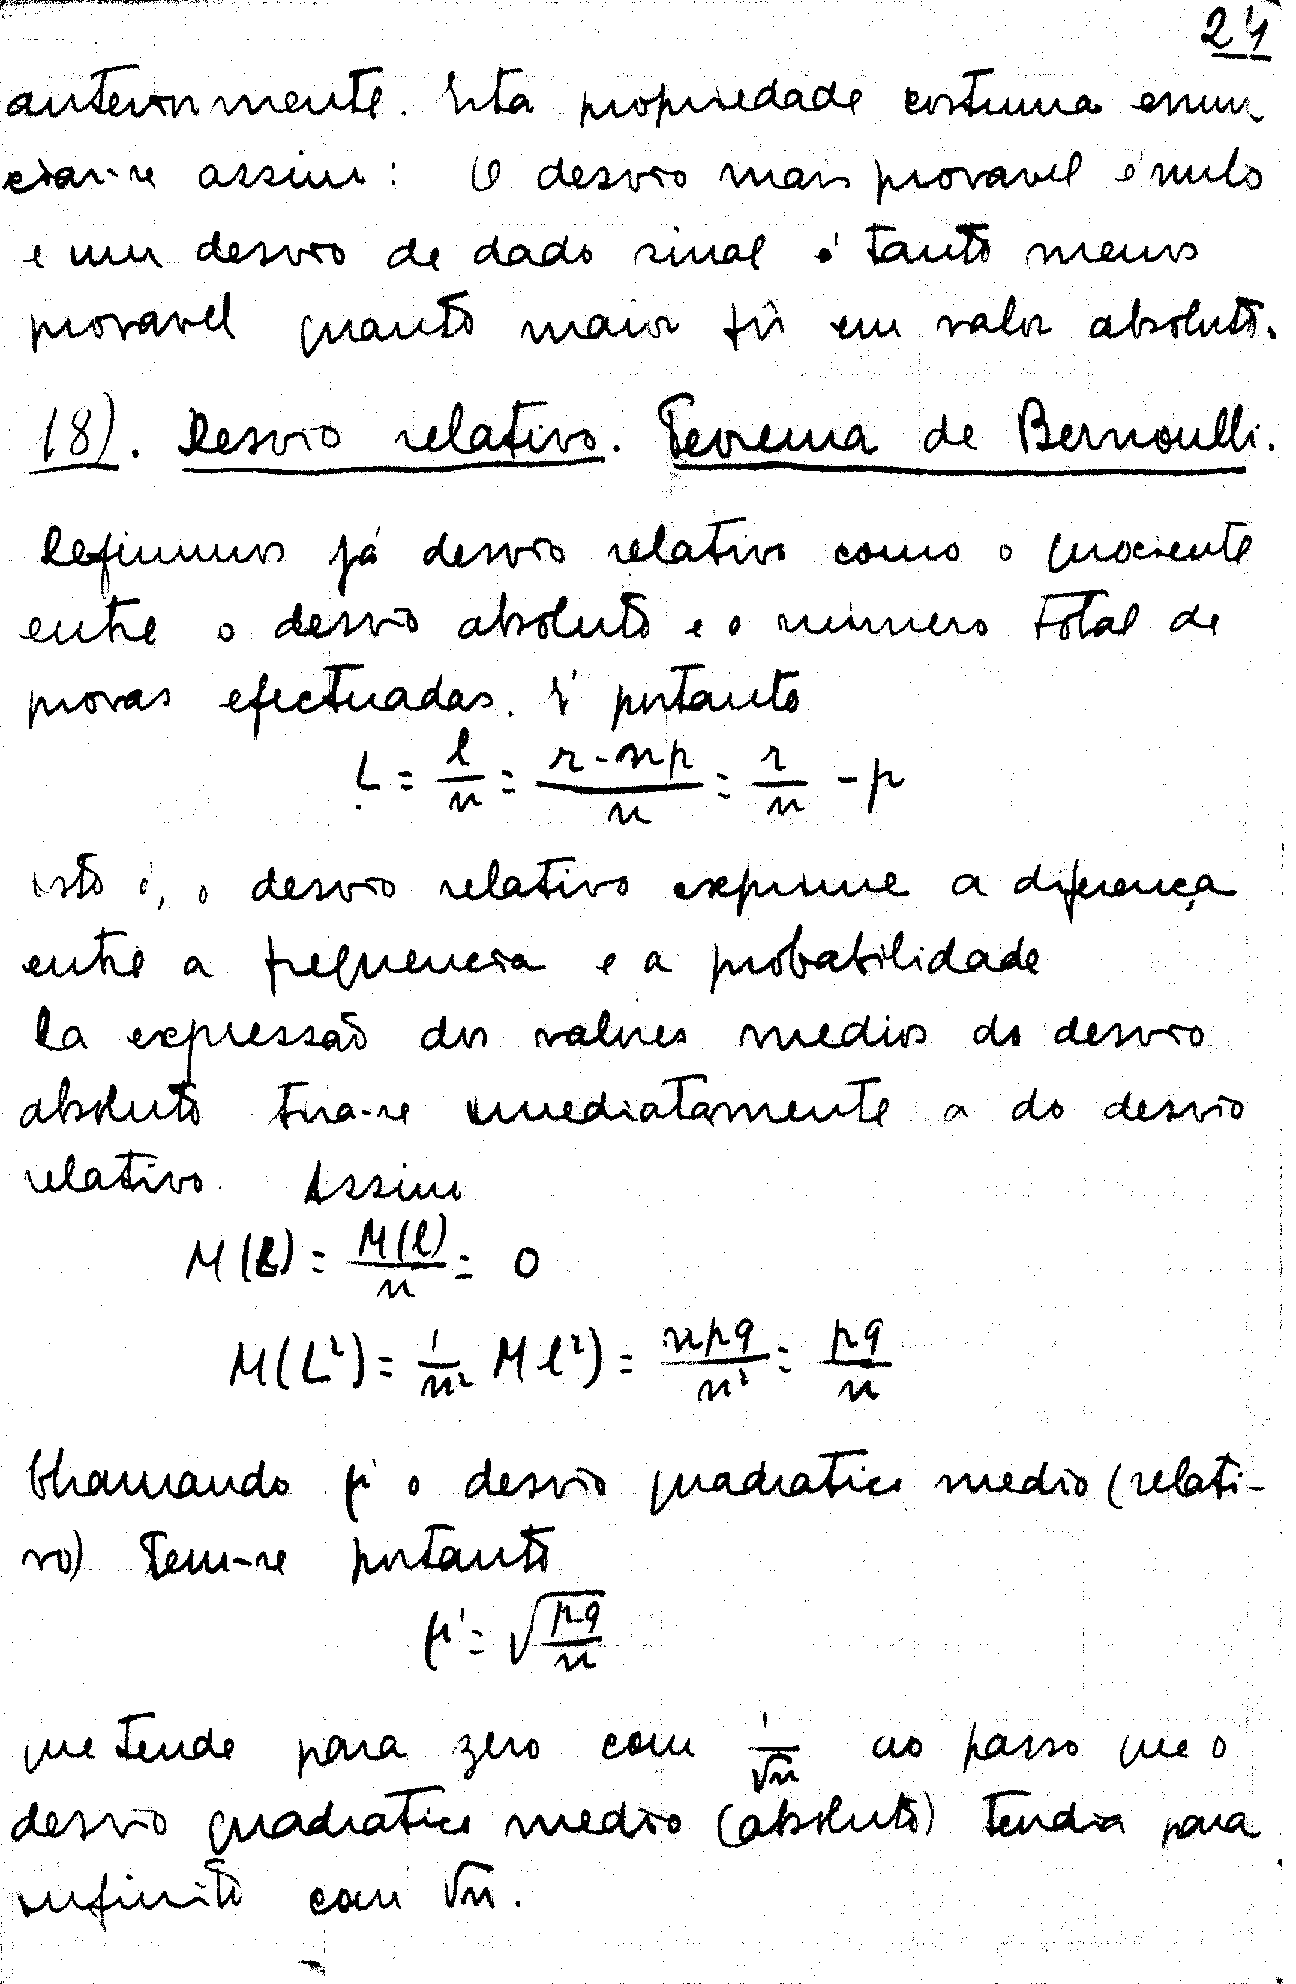 24
anteriormente. Esta propriedade costuma enun
ciar-se assim: O desvio mais provavel é nulo
e um desvio de dado sinal é tanto menos
provavel quanto maior fôr em valor absoluto.
18). Desvio relativo. Teorema de Bernoulli.
Definimos já desvio relativo como o quociente
entre o desvio absoluto e o número total de
provas efectuadas. É portanto
L = l/n = (r - np)/n = r/n - p
isto é, o desvio relativo exprime a diferença
entre a frequencia e a probabilidade
Da expressão dos valores medios do desvio
absoluto tira-se imediatamente a do desvio
relativo. Assim
M(L) = M(l)/n = 0
M(L²) = 1/n² M l²) = npq/n² = pq/n
Chamando μ' o desvio quadratico medio (relati-
vo) tem-se portanto
μ' = √(pq/n)
que tende para zero com 1/√n ao passo que o
desvio quadratico medio (absoluto) tendia para
infinito com √n.